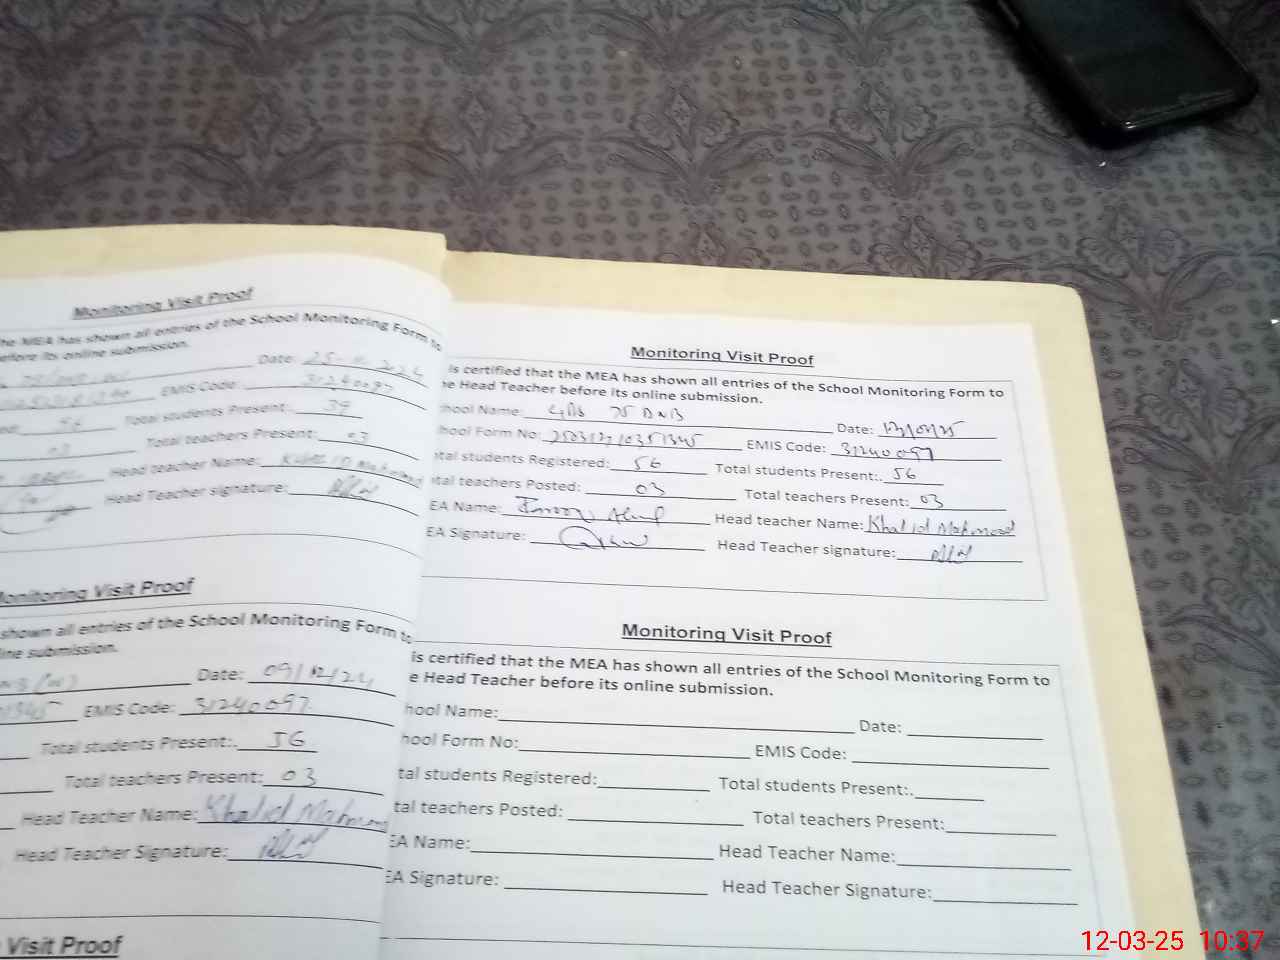 Monitoring Visit Proof
he MEA has shown all entries of the School Monitoring Form to
efore its online submission.
Date: 25-11-2024
EMIS Code: 31240097
Total students Present:. 39
03 Total teachers Present: 03
Head teacher Name:
Head Teacher signature:
onitoring Visit Proof
shown all entries of the School Monitoring Form to
line submission.
Date: 09/12/24
EMIS Code: 31240097
Total students Present:. 56
Total teachers Present: 03
Head Teacher Name: Khalid Mahmood
Head Teacher Signature:
Visit Proof
Monitoring Visit Proof
is certified that the MEA has shown all entries of the School Monitoring Form to
e Head Teacher before its online submission.
hool Name: 75 DNB Date:
hool Form No: EMIS Code: 31240097
tal students Registered: 56 Total students Present:. 56
tal teachers Posted: 03 Total teachers Present: 03
EA Name: Head teacher Name: Khalid Mahmood
EA Signature: Head Teacher signature:
Monitoring Visit Proof
is certified that the MEA has shown all entries of the School Monitoring Form to
e Head Teacher before its online submission.
hool Name: Date:
hool Form No: EMIS Code:
tal students Registered: Total students Present:.
tal teachers Posted: Total teachers Present:
EA Name: Head Teacher Name:
EA Signature: Head Teacher Signature:
12-03-25 10:37